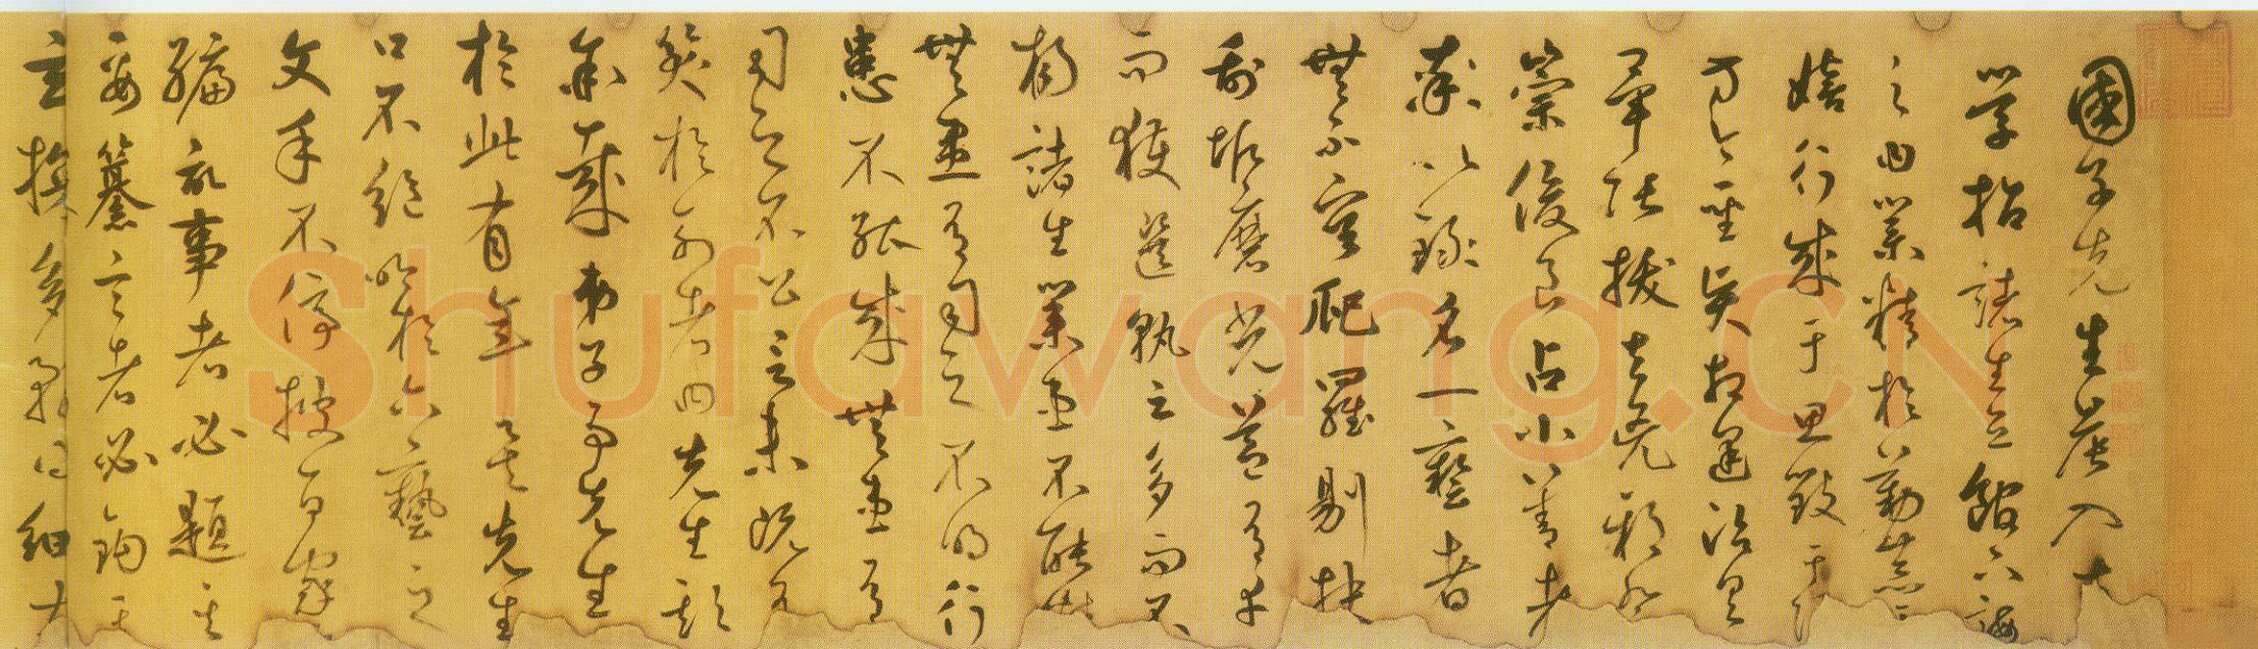 國子先生晨入大
學招諸生立館下誨
之曰業精於勤荒于
嬉行成于思毀于
方今聖賢相逢治具
畢張拔去兇邪登
崇俊良占小善者
率以錄名一藝者
無不庸爬羅剔抉
刮垢磨光蓋有幸
而獲選孰云多而不
揚諸生業患不能
無患有司之不明行
患不能成無患有
司之不公言未既有
笑於列者曰先生欺
余哉弟子事先生
於此有年矣先生
口不絕吟於六藝之
文手不停披百家
編記事者必題其
要纂言者必鉤其
玄探多務得細大
Shufawang.CN